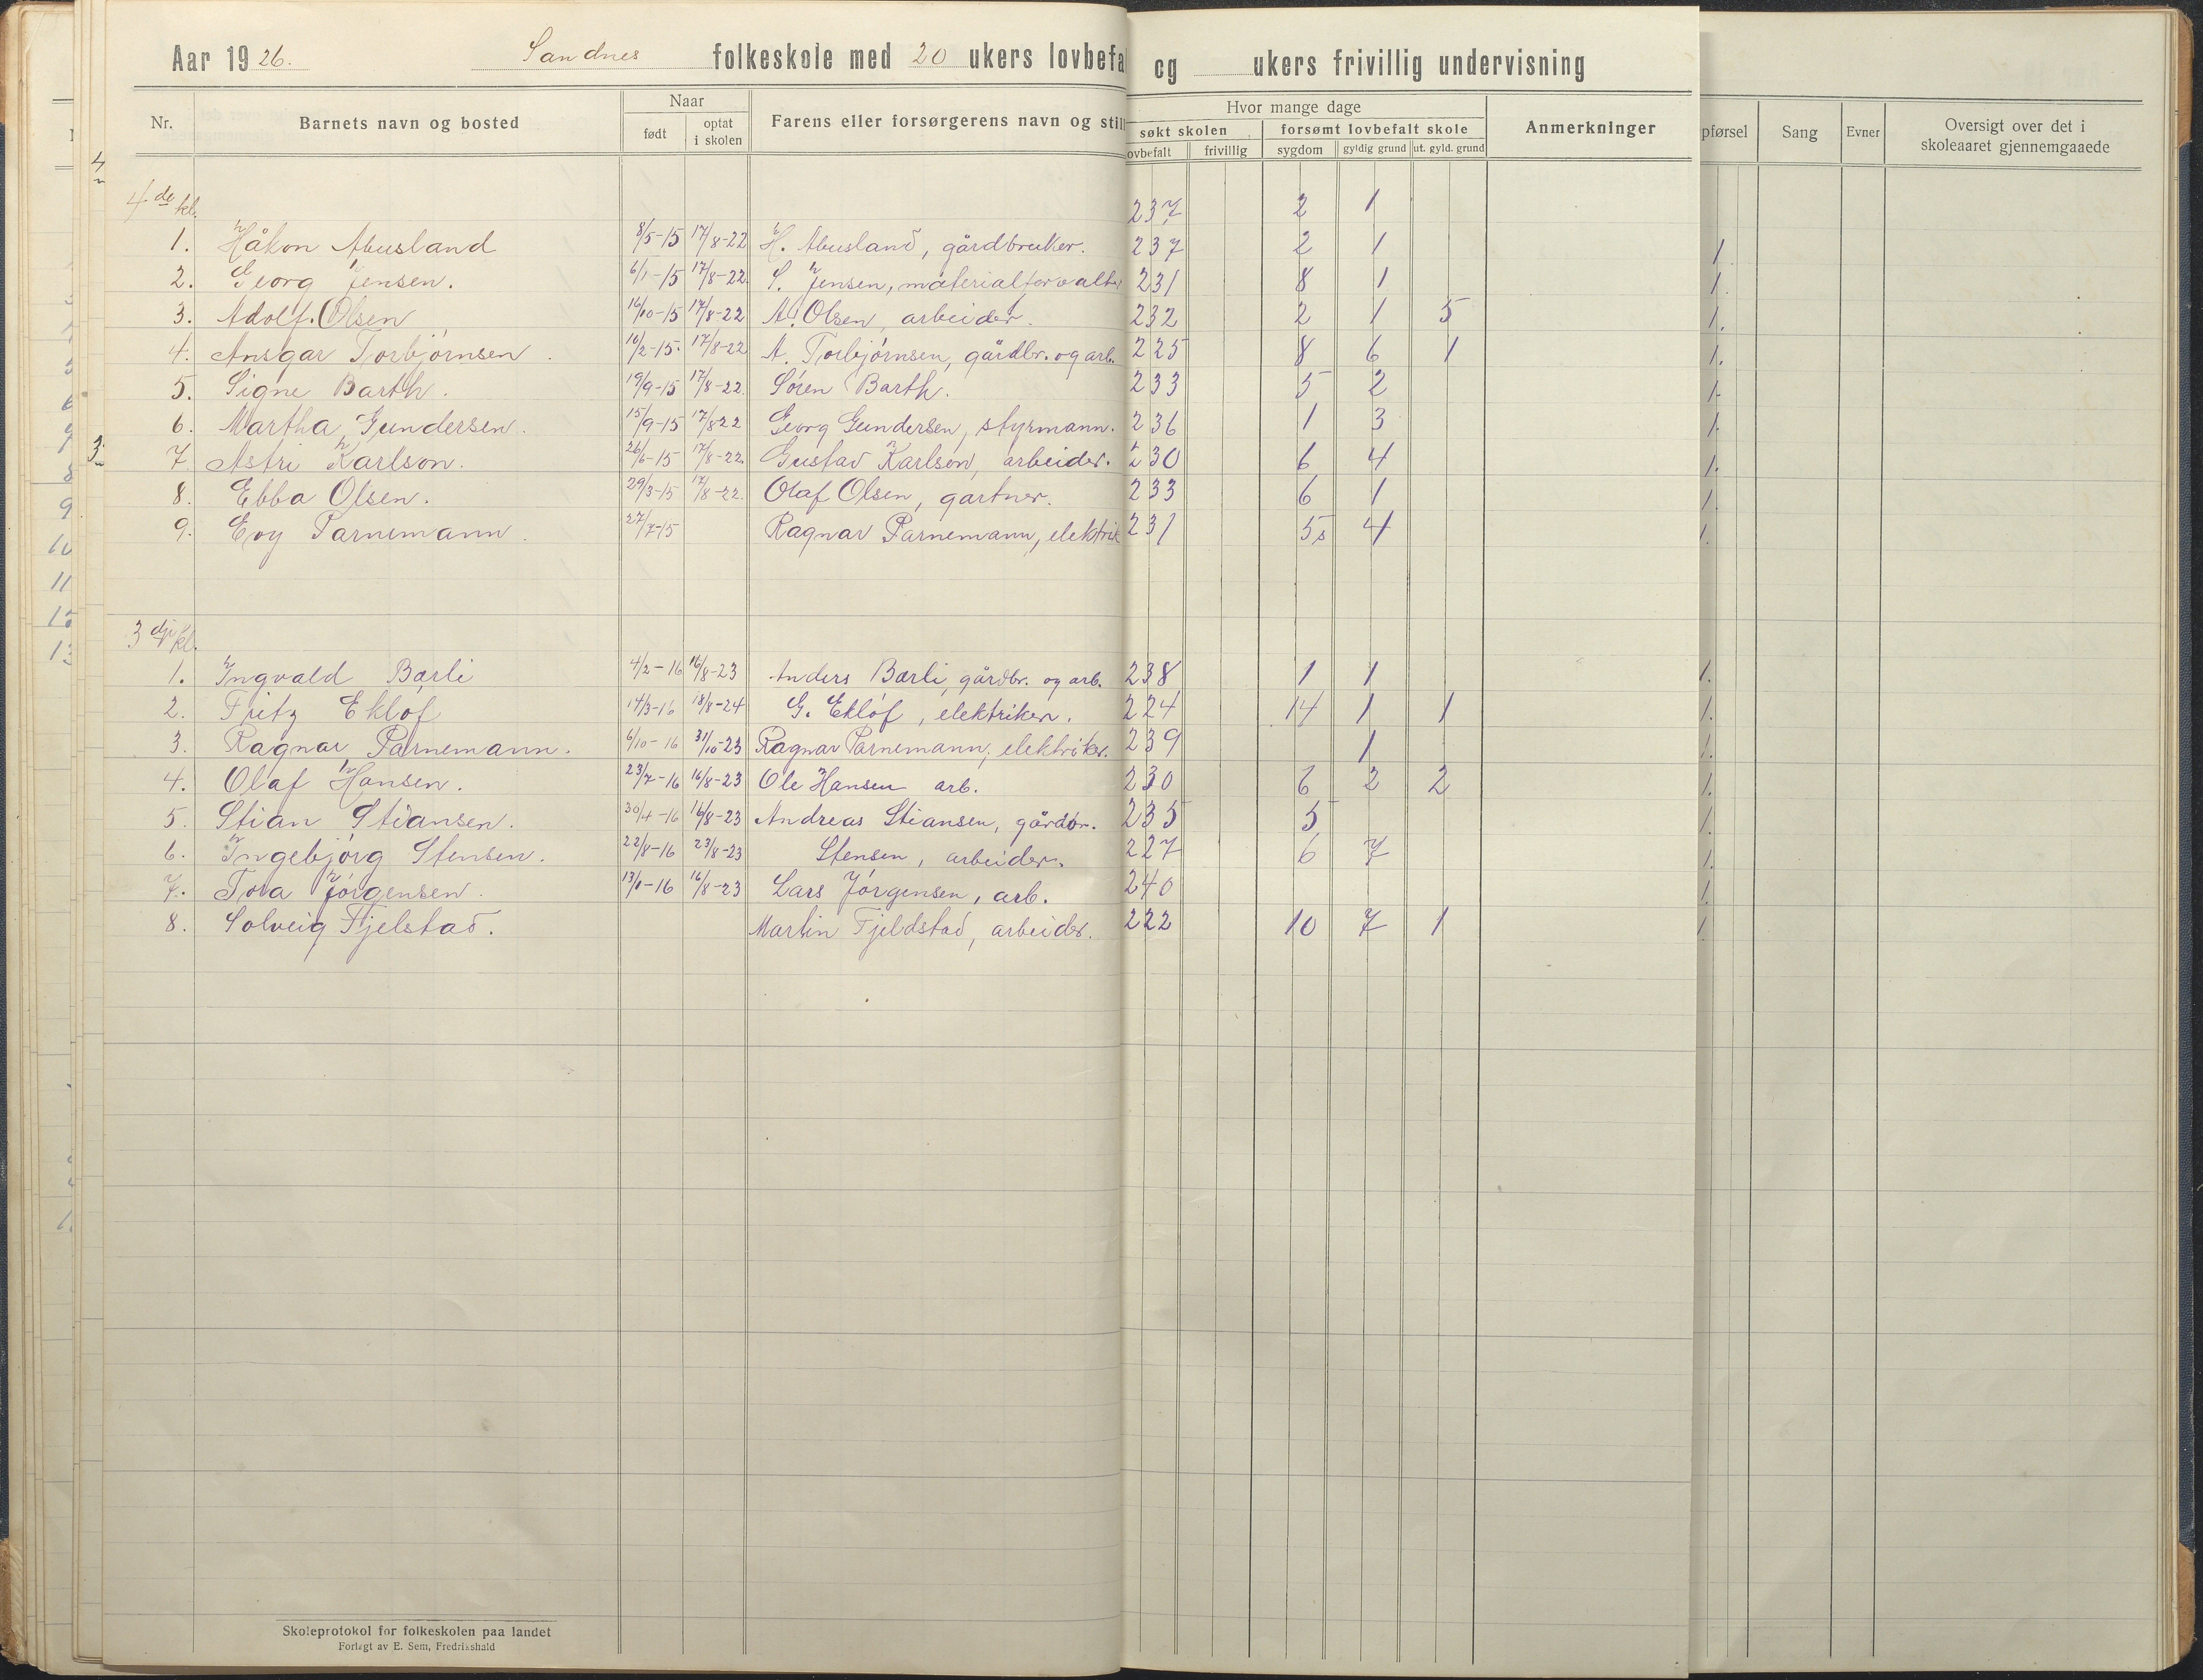 Aar 1926. Sandnes folkeskole med 20 ukers lovbefa og ukers frivillig undervisning
Nr. Barnets navn og bosted Naar født optat i skolen Farens eller forsørgerens navn og still Hvor mange dage søkt skolen lovbefalt frivillig forsømt lovbefalt skole sygdom gyldig grund ut. gyld. grund Anmerkninger pførsel Sang Evner Oversigt over det i skoleaaret gjennemgaaede
4de kl. 237 2 1
1. Håkon Abusland 8/5-15 17/8-22 H. Abusland, gårdbruker. 237 2 1 1
2. Georg Jensen. 6/1-15 17/8-22. S. Jensen, materialforvalter 231 8 1 1.
3. Adolf. Olsen 16/10-15 17/8-22 A. Olsen, arbeider. 232 2 1 5 1.
4. Ansgar Torbjørnsen. 10/2-15. 17/8-22 A. Torbjørnsen, gårdbr. og arb. 225 8 6 1 1.
5. Signe Barth. 19/9-15 17/8-22. Søren Barth. 233 5 2 1.
6. Martha Gundersen. 15/9-15 17/8 22 Georg Gundersen, styrmann. 236 1 3 1.
7 Astri Karlson. 26/6-15 17/8-22. Gustav Karlsen, arbeider. 230 6 4 1.
8. Ebba Olsen. 29/3-15 17/8-22. Olaf Olsen, gartner. 233 6 1 1.
9. Evy Parnemann. 27/7-15 Ragnar Parnemann, elektrik 231 5s 4 1.
3dje kl.
1. Ingvald Barli 4/2-16 16/8-23 Anders Barli, gårdbr. og arb. 238 1 1 1.
2. Fritz Ekløf 14/3-16 18/8-24 G. Ekløf, elektriker. 224 14 1 1 1.
3. Ragnar Parnemann. 6/10-16 31/10-23 Ragnar Parnemann, elektriker. 239 1 1.
4. Olaf Hansen. 23/7-16 16/8-23 Ole Hansen arb. 230 6 2 2 1.
5. Stian Stiansen. 30/4-16 16/8-23 Andreas Stiansen, gårdbr. 235 5 1.
6. Ingebjørg Stensen. 22/8-16 23/8-23 Stensen, arbeider. 227 6 7 1.
7. Tora Jørgensen. 16/8-23 Lars Jørgensen, arb. 240 1.
8. Solveig Fjelstad. Martin Fjeldstad, arbeider. 222 10 7 1 1.
Skoleprotokol for folkeskolen paa landet
Forlagt av E. Sem, Fredrikshald